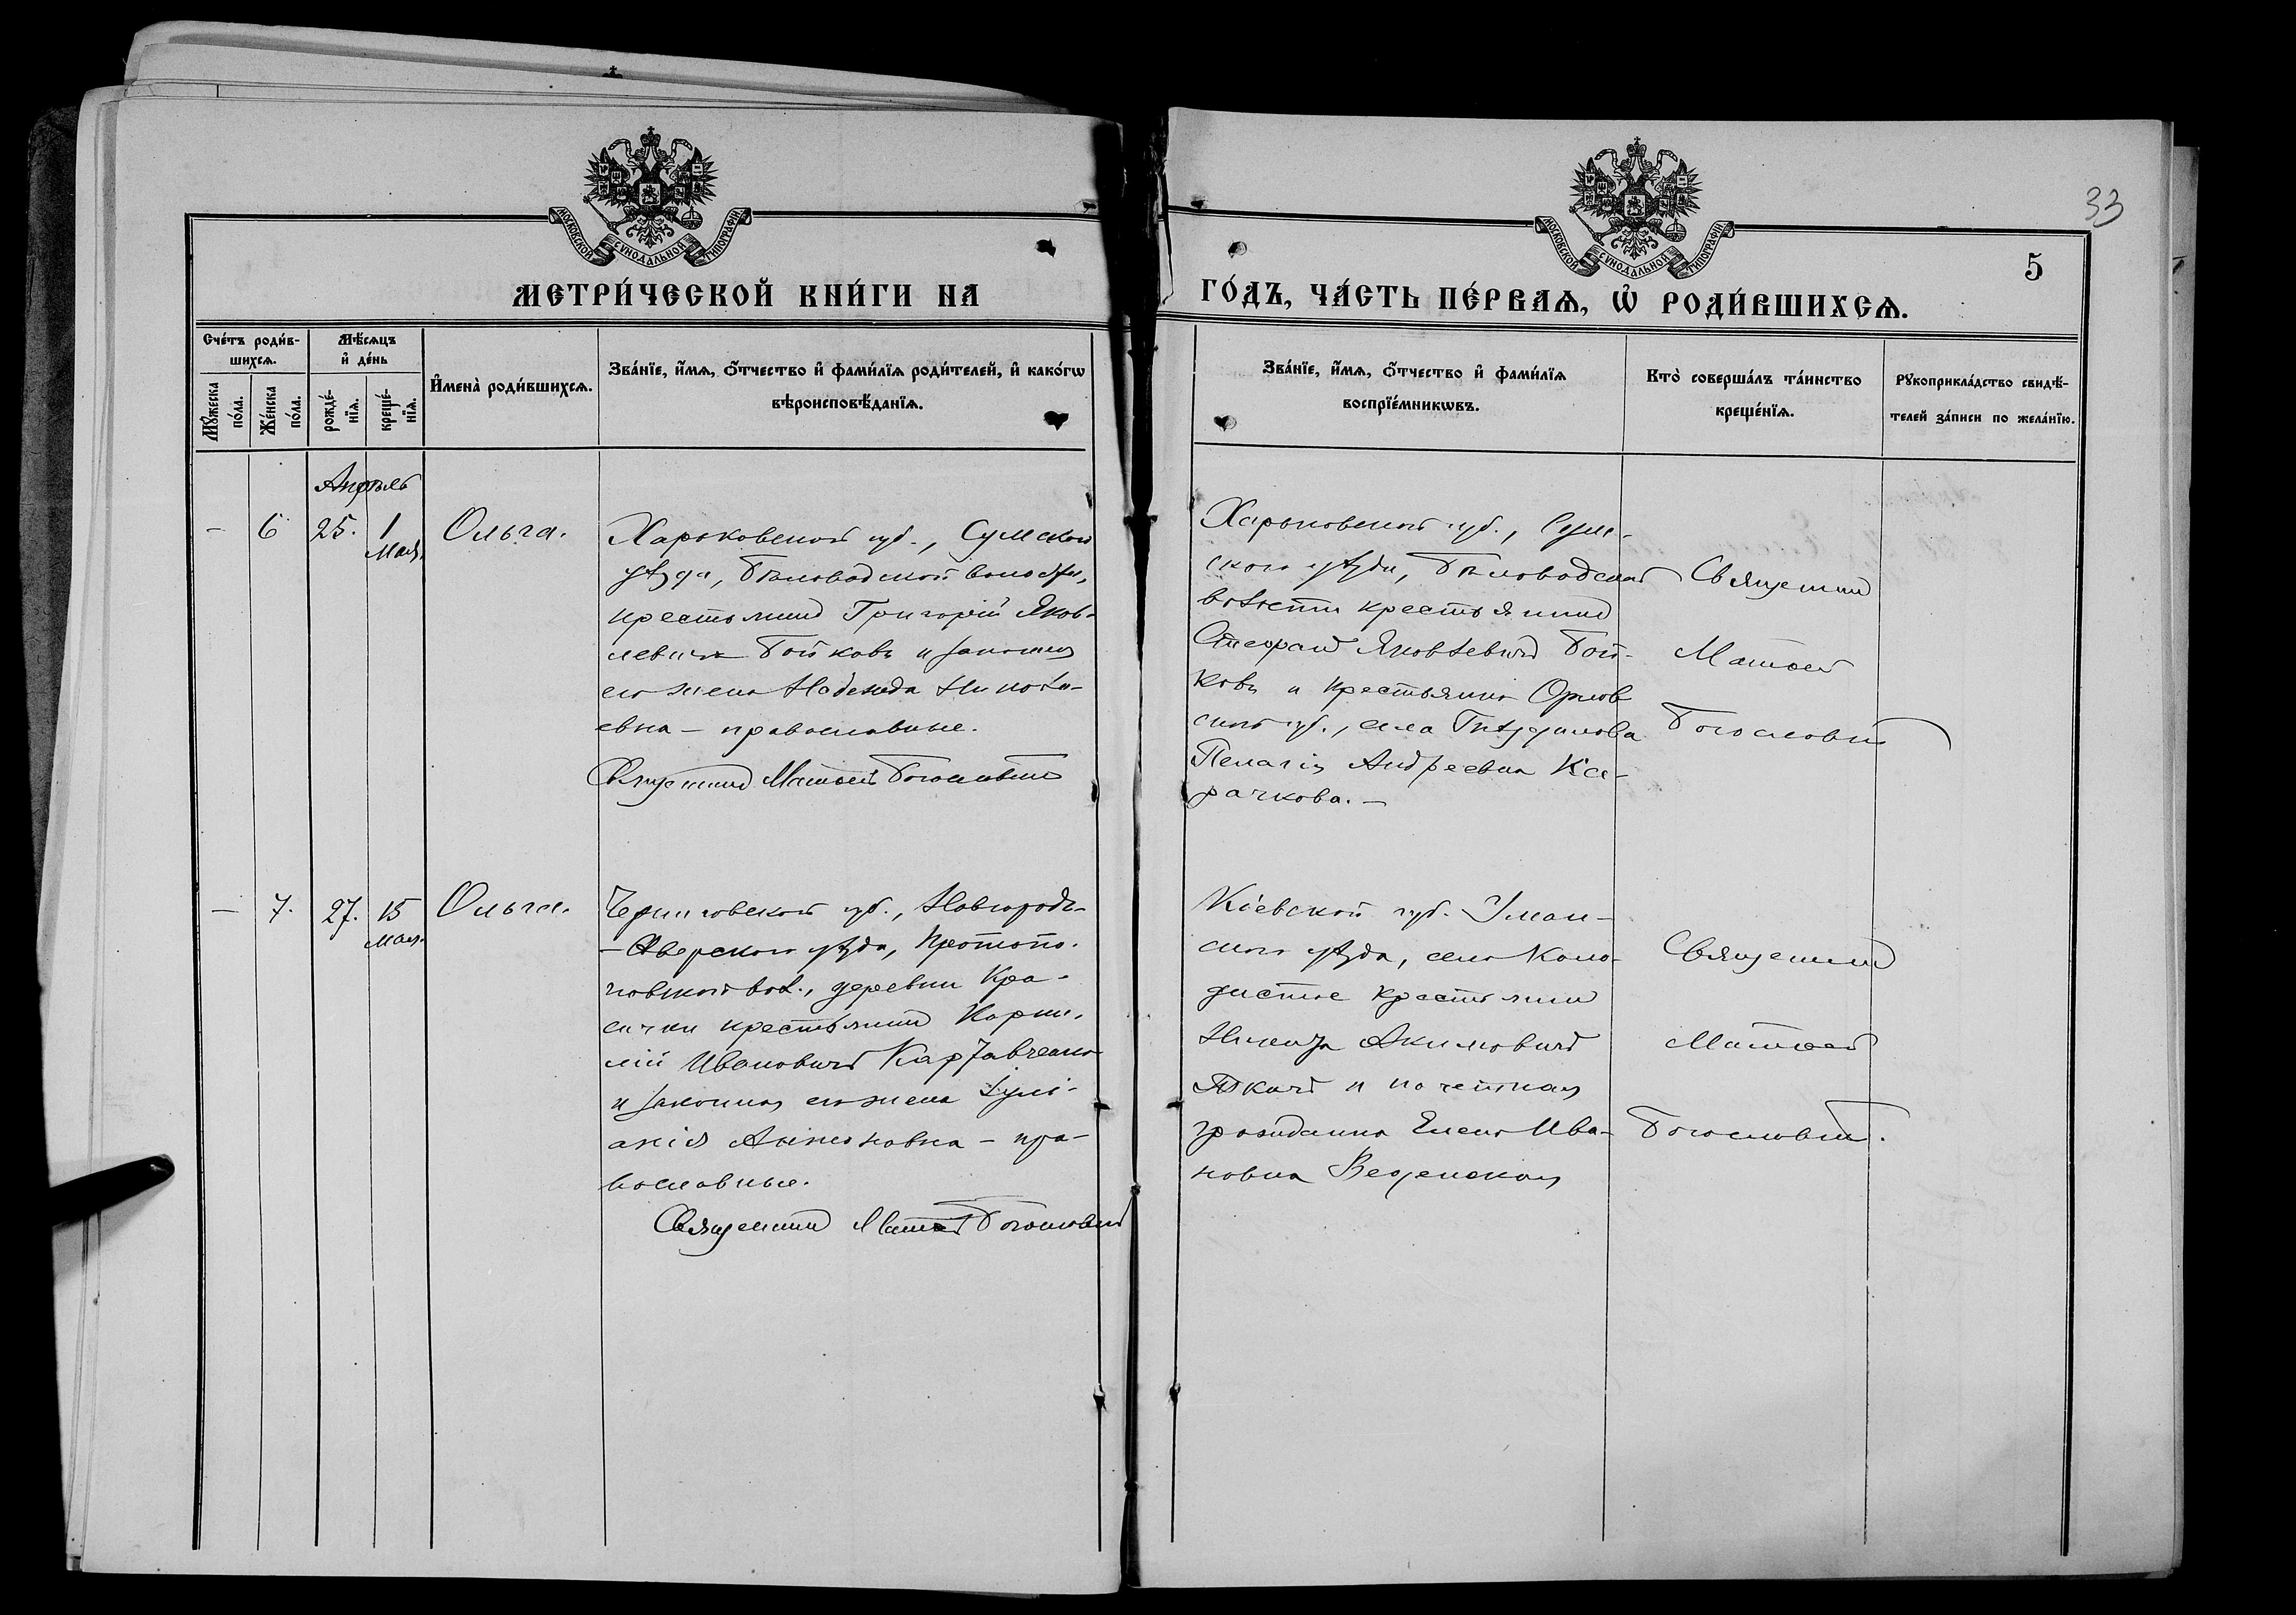 33
5
МОСКОВСКОЙ СѴНОДАЛЬНОЙ ТИПОГРАФІИ
МОСКОВСКОЙ СѴНОДАЛЬНОЙ ТИПОГРАФІИ
МЕТРИ́ЧЕСКОЙ КНИ́ГИ НА
ГО́ДЪ, ЧА́СТЬ ПЕ́РВАѦ, Ѽ РОДИ́ВШИХСѦ.
Сче́тъ роди́в-
шихсѧ.
Мꙋ́жеска
по́ла.
Же́нска
по́ла.
Мѣ́сѧцъ
и҆ де́нь
рожде́-
нїѧ.
креще́-
нїѧ.
И҆мена̀ роди́вшихсѧ.
Зва́нїе, и҆́мѧ, ѻ҆́тчество и҆ фами́лїѧ роди́телей, и҆ како́гѡ
вѣроисповѣ́данїѧ.
Зва́нїе, и҆́мѧ, ѻ҆́тчество и҆ фами́лїѧ
воспрїе́мникѡвъ.
Кто̀ соверша́лъ та́инство
креще́нїѧ.
Рꙋкоприкла́дство свидѣ́-
телей за́писи по жела́нїю.
Апрѣль
-
6
25.
1
Мая.
Ольга.
Харьковской губ., Сумскаго
уѣзда, Бѣловодской волости,
крестьянинъ Григорій Яков-
левичъ Бойковъ и законная
его жена Надежда Никола-
евна - православные.
Священникъ Матѳей Богословскій
Харьковской губ., Сум-
скаго уѣзда, Бѣловодской
волости крестьянинъ
Стефанъ Яковлевичъ Бой-
ковъ и крестьянка Орлов
ской губ., села Гнѣздилова
Пелагія Андреевна Ка-
рачкова. -
Священникъ
Матѳей
Богословскій
-
7.
27.
15
Мая.
Ольга.
Черниговской губ., Новгородъ-
-Сѣверскаго уѣзда,
вол., деревни Кра-
сички крестьянинъ Корни-
лій Ивановичъ Картавченко
и законная его жена Іулі-
анія - пра-
вославные.
Священникъ Матѳей Богословскій
Кіевской губ. Уман-
скаго уѣзда, села Коло-
дистое крестьянинъ
Акимовичъ
Ткачъ и почетная
гражданка Елена Ива-
новна Введенская
Священникъ
Матѳей
Богословскій.